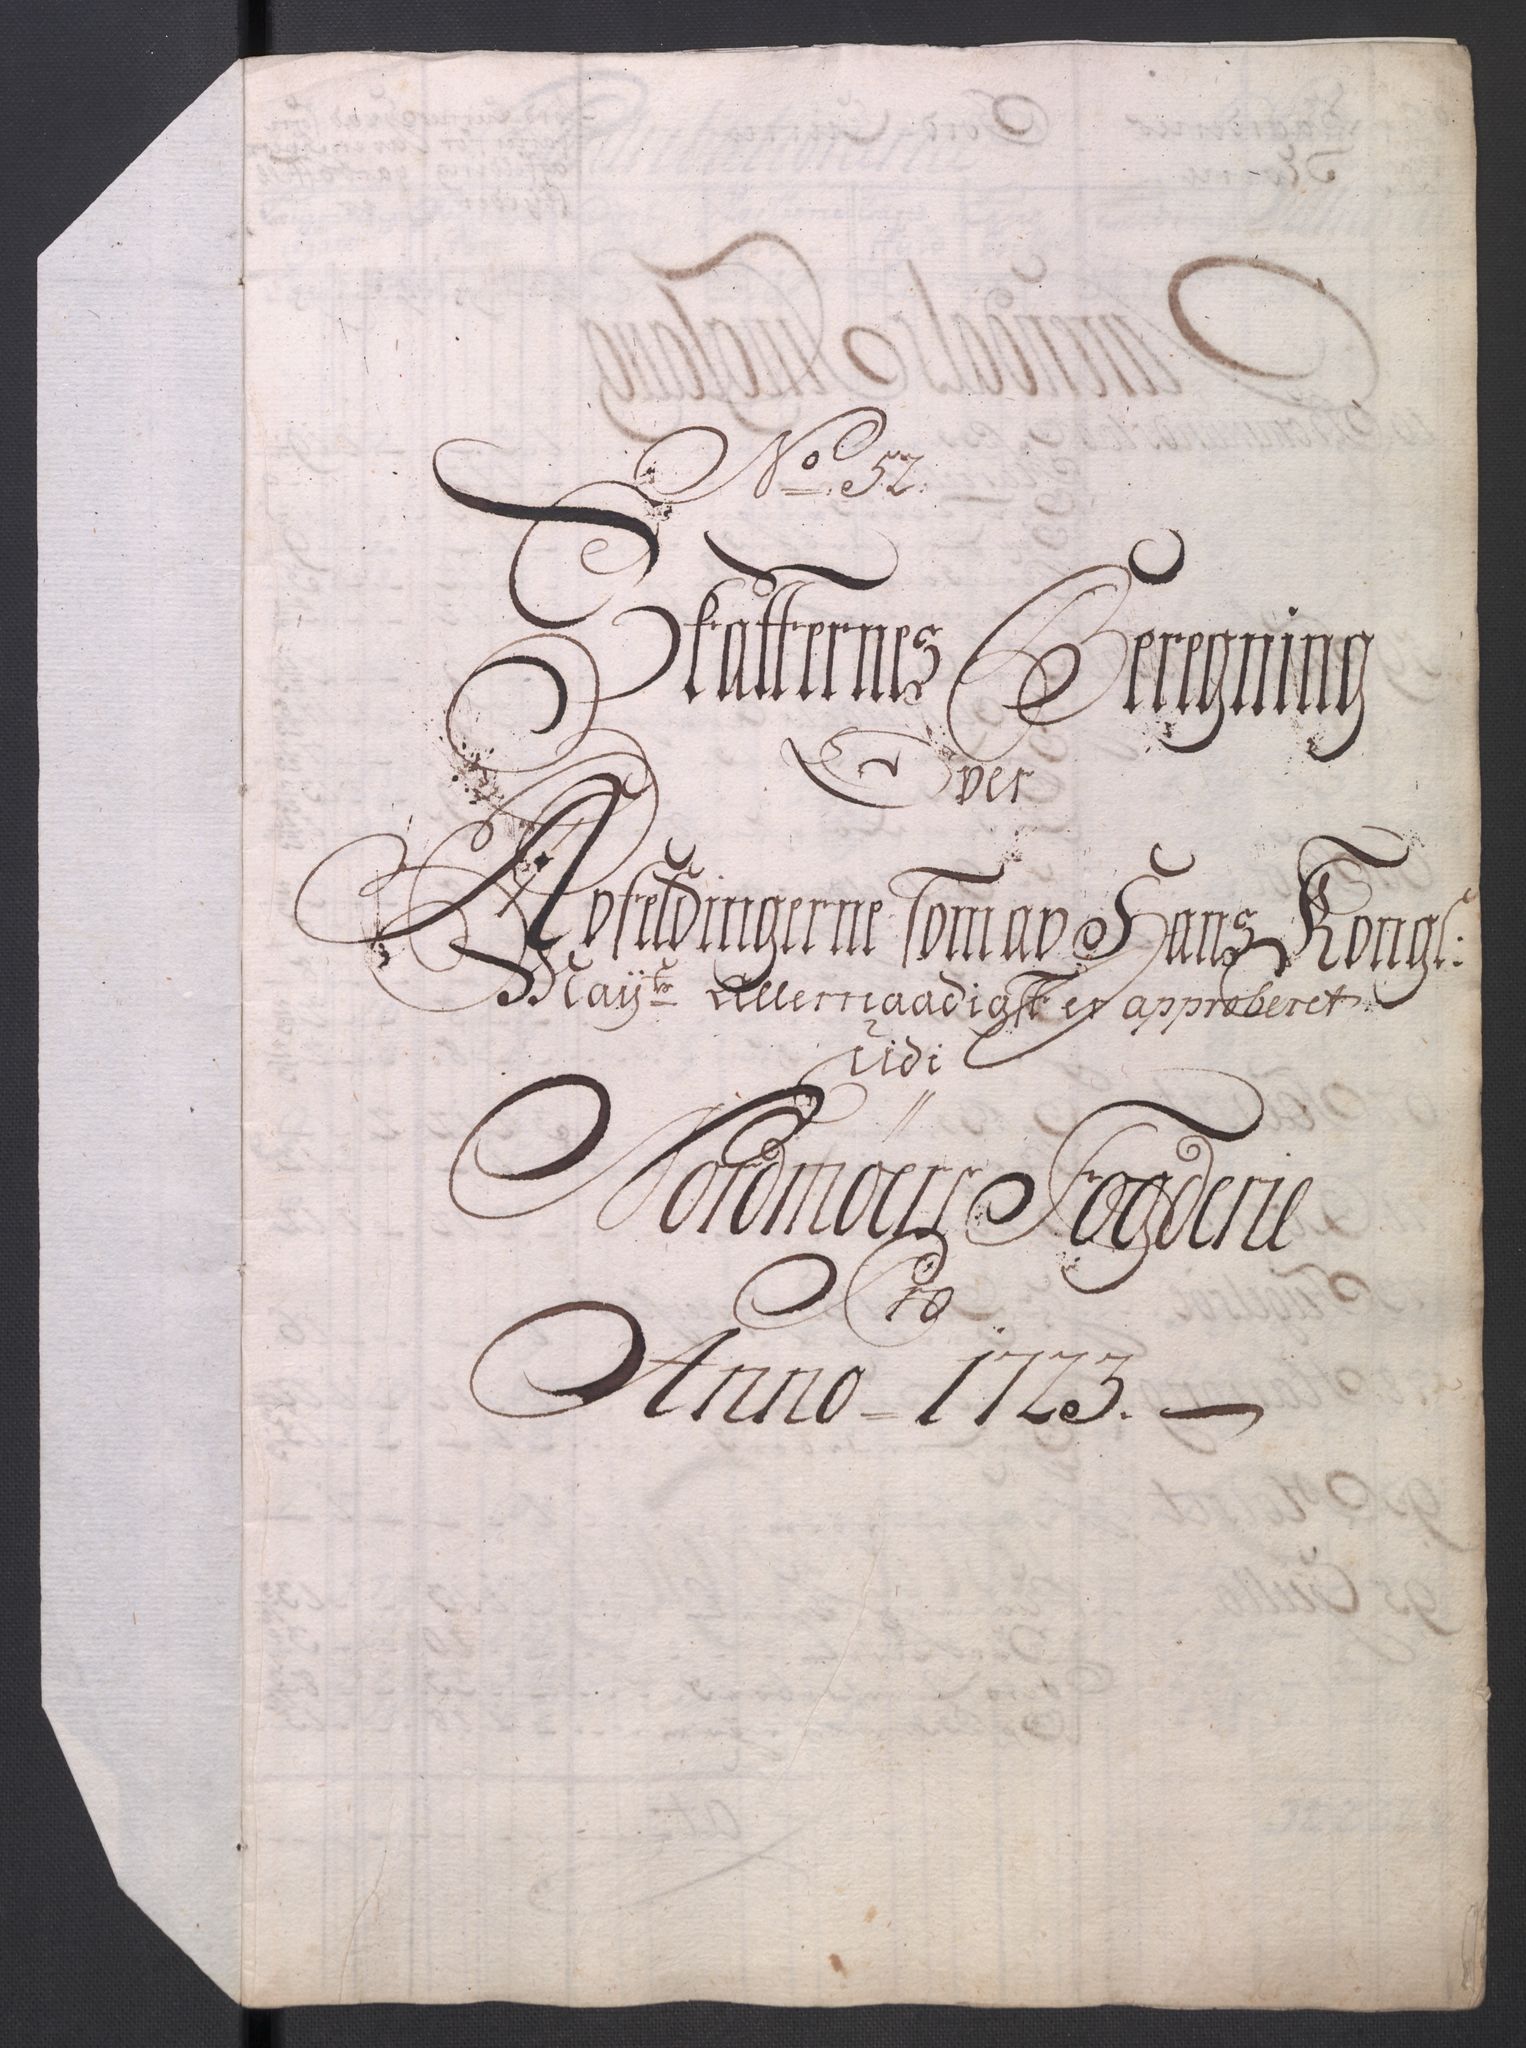 No. 52.
Skatternes Beregning
Over
Avfeldingerne som av Hans Kongl:
Mayts Allernaadigst er approberet
udi
Nordmøers Fogderie
Pro
Anno = 1723.